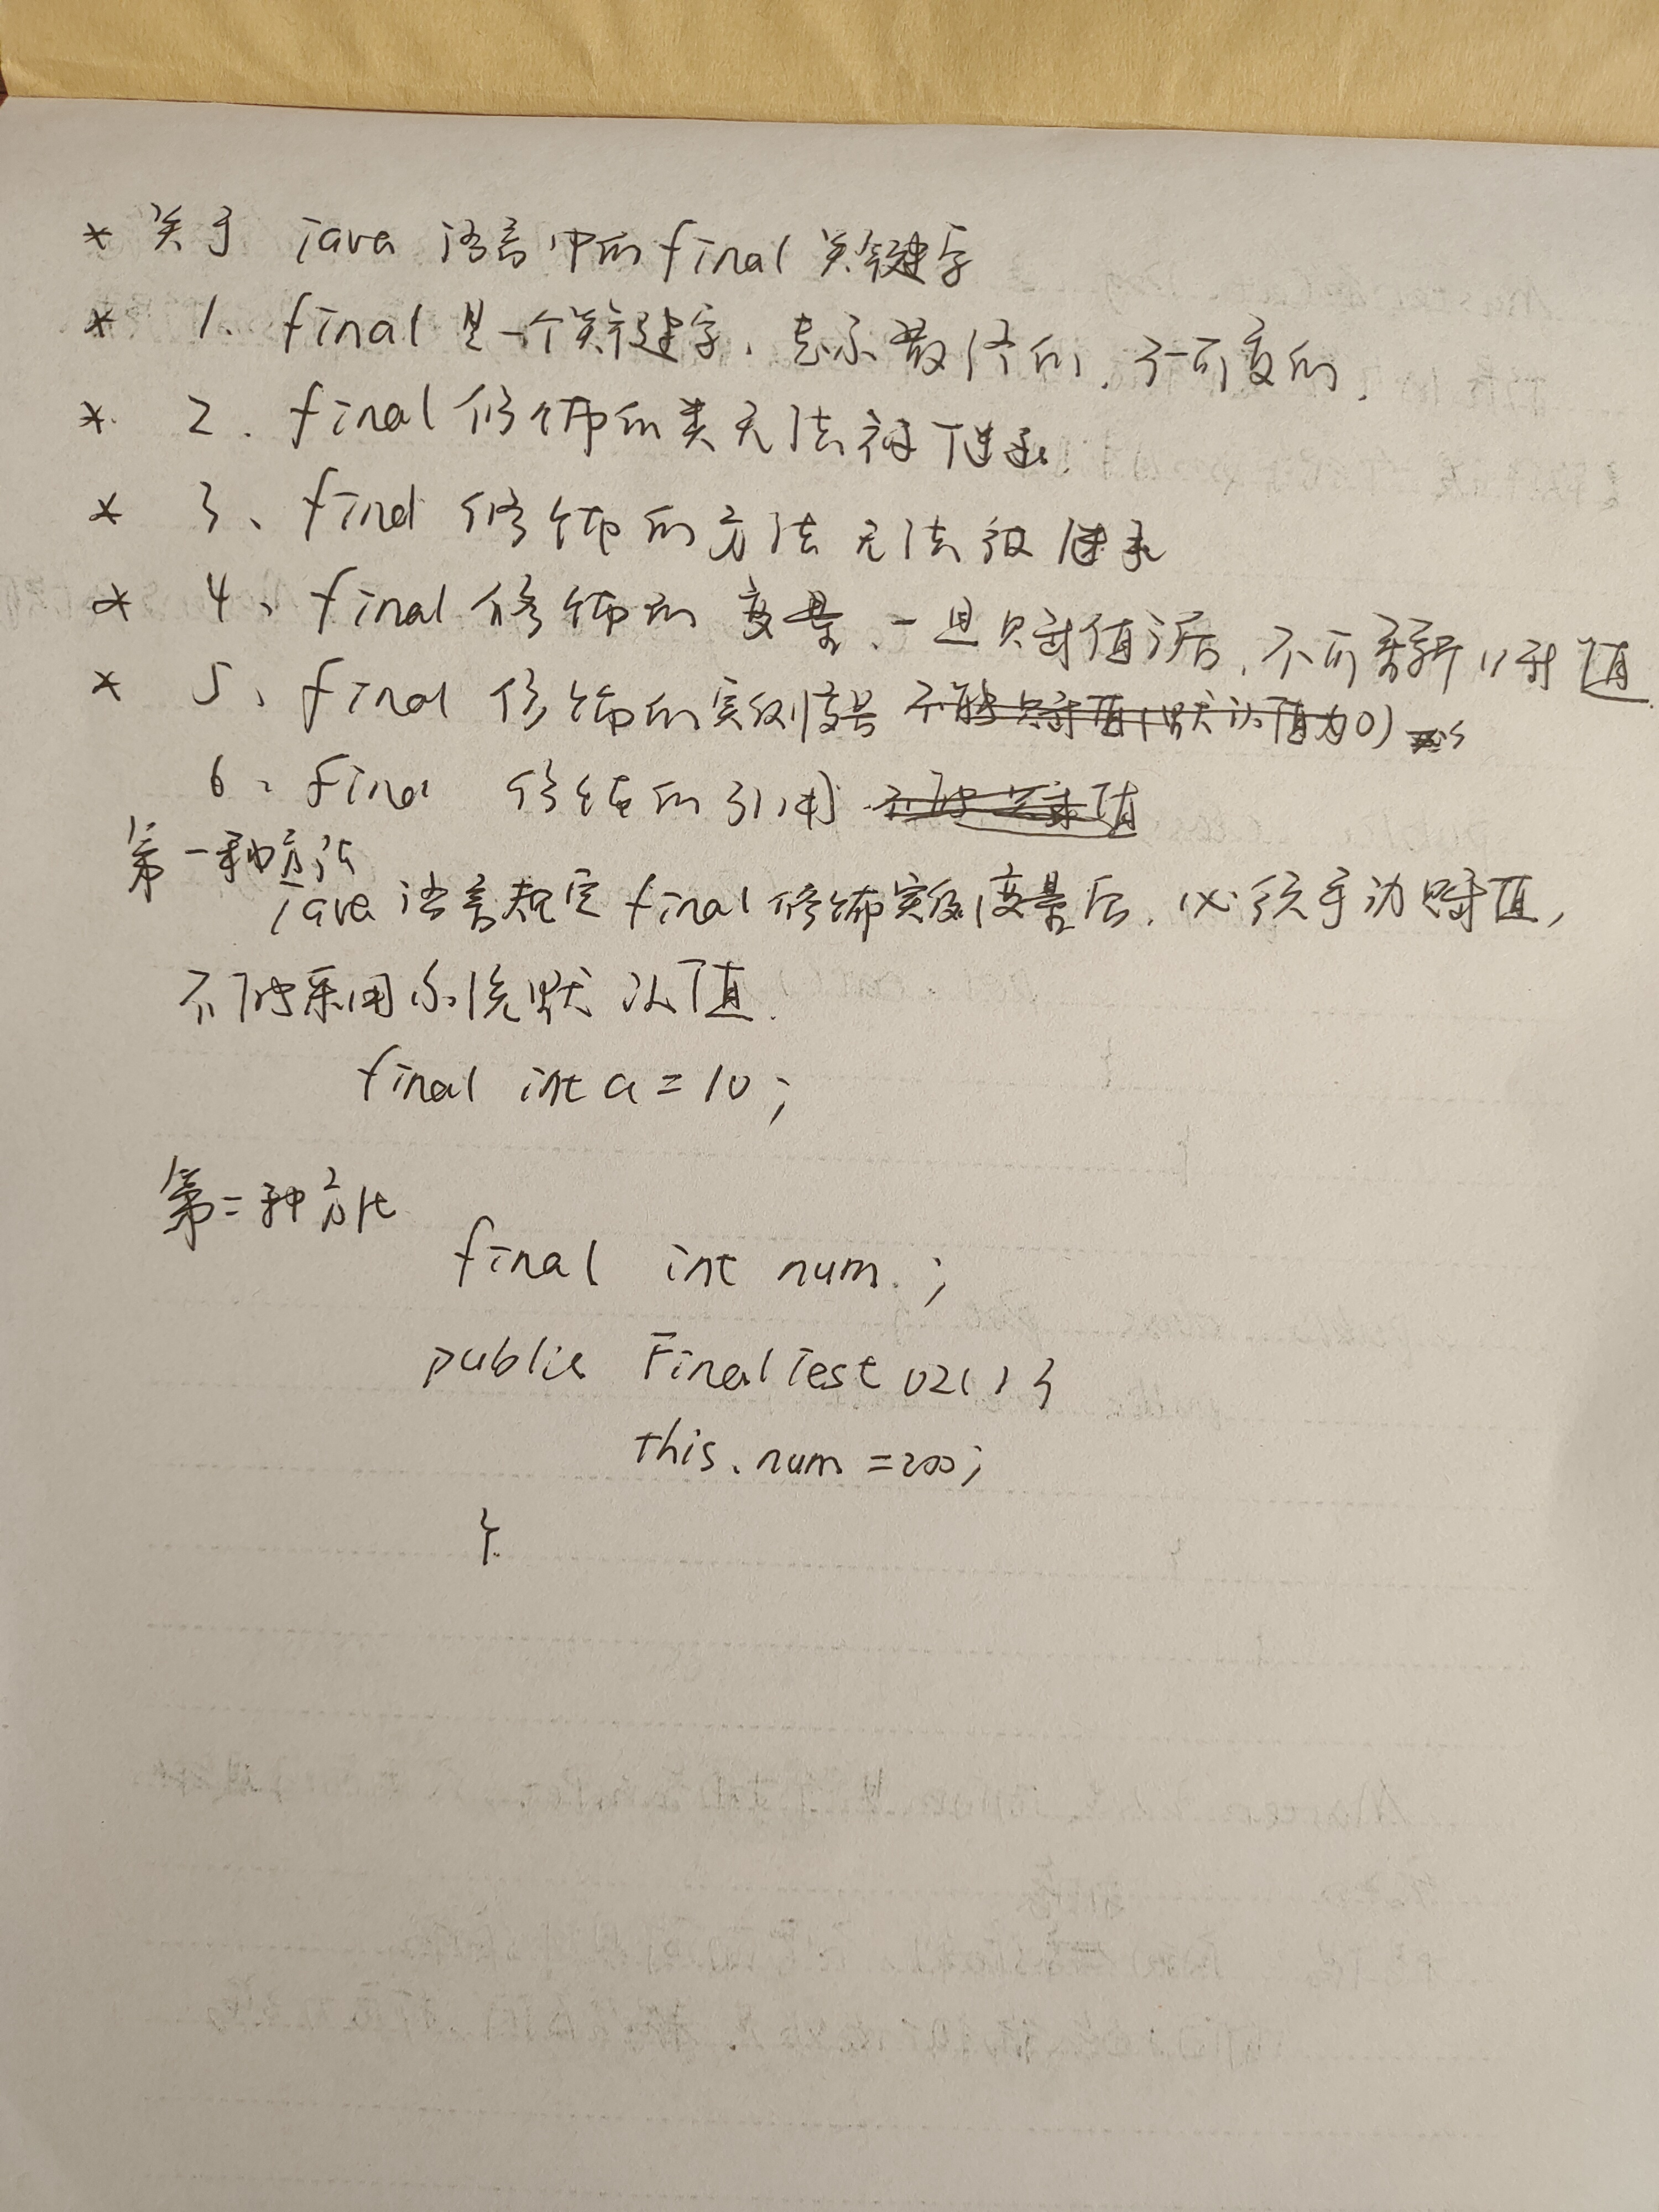 * 关于 java 语言中的final关键字
* 1、final是一个关键字,表示最终的,不可变的,
* 2、final修饰的类无法被继承
* 3、final 修饰的方法无法被继承
* 4、final修饰的变量,一旦赋值后,不可重新赋值
* 5、final 修饰的实例变量 不能赋值(默认值为0)
6、final 修饰的引用 不能赋值
第一种方法
java语言规定final修饰实例变量后,必须手动赋值,
不能采用系统默认值.
final int a = 10;
第二种方法
final int num;
public FinalTest02(){
this.num = 200;
}